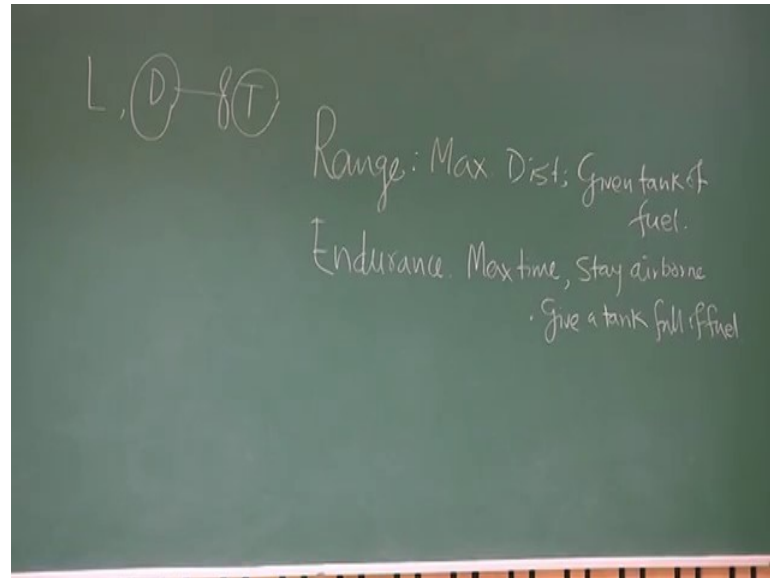 L, D — T
Range: Max. Dist; Given tank of
fuel.
Endurance. Max time, Stay airborne
. Give a tank full of fuel